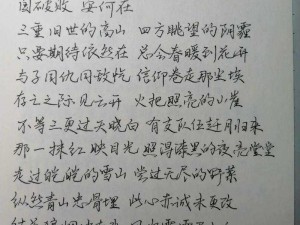 国破败 安何在
三重旧世的高山 四方眺望的阴霾
只要期待依然在 总会春暖到花开
与子同仇同敌忾 信仰卷走那尘埃
存亡之际见云开 火把照亮的小崖
不等三更过天晓白 有支队伍赶月归来
那一抹红映目光 照漆黑的夜亮堂堂
走过皑皑的雪山 尝过无尽的野菜
纵然青山忠骨埋 此心亦诚未更改